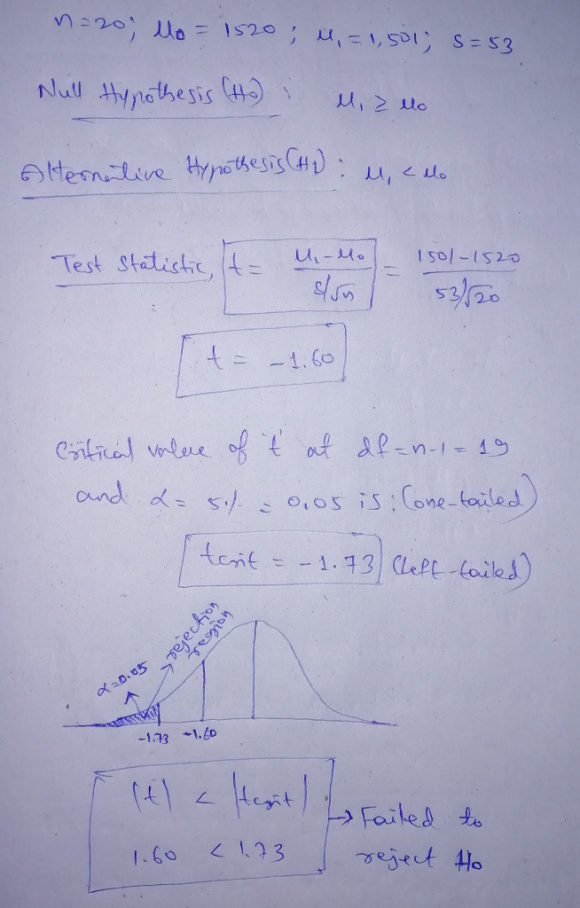 n=20; μ₀ = 1520 ; μ₁ = 1,501; S=53
Null Hypothesis (H₀) : μ₁ ≥ μ₀
Alternative Hypothesis (H₁) : μ₁ < μ₀
Test Statistic, t = μ₁-μ₀ / s/√n = 1501-1520 / 53/√20
t = -1.60
Critical value of 't' at df = n-1 = 19
and α = 5% = 0.05 is : (one-tailed)
tcrit = -1.73 (left-tailed)
α=0.05
rejection
region
-1.73 -1.60
|t| < |tcrit|
1.60 < 1.73
→ Failed to
reject H₀